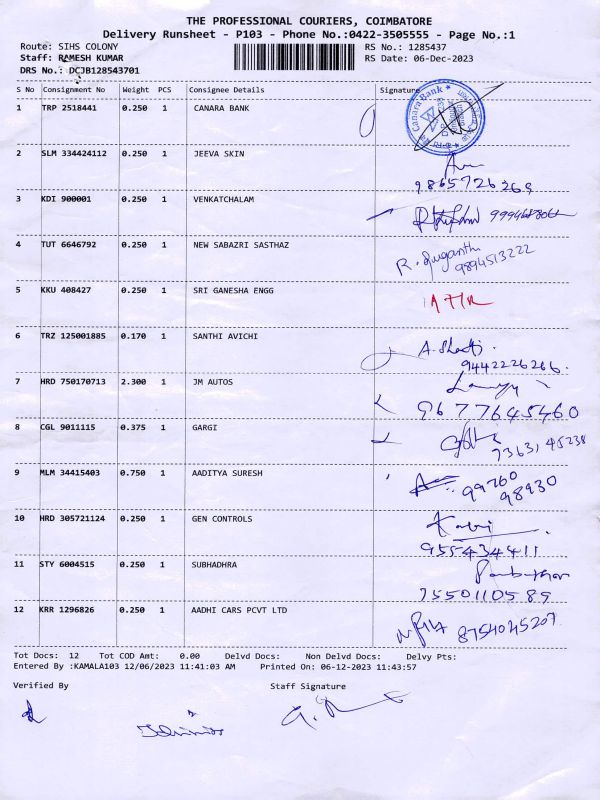 THE PROFESSIONAL COURIERS, COIMBATORE
Delivery Runsheet - P103 - Phone No.:0422-3505555 - Page No.:1
Route: SIHS COLONY RS No.: 1285437
Staff: RAMESH KUMAR RS Date: 06-Dec-2023
DRS No.: DCJB128543701
S No Consignment No Weight PCS Consignee Details Signature
1 TRP 2518441 0.250 1 CANARA BANK
Canara Bank
2 SLM 334424112 0.250 1 JEEVA SKIN
9865726269
3 KDI 900001 0.250 1 VENKATCHALAM
4 TUT 6646792 0.250 1 NEW SABAZRI SASTHAZ
R. Suganthi
9894513222
5 KKU 408427 0.250 1 SRI GANESHA ENGG
6 TRZ 125001885 0.170 1 SANTHI AVICHI
A. Shanti
9442226266.
7 HRD 750170713 2.300 1 JM AUTOS
9677645460
8 CGL 9011115 0.375 1 GARGI
7363145238
9 MLM 34415403 0.750 1 AADITYA SURESH
99760
98930
10 HRD 305721124 0.250 1 GEN CONTROLS
955434411
11 STY 6004515 0.250 1 SUBHADHRA
7550110585
12 KRR 1296826 0.250 1 AADHI CARS PCVT LTD
8754045207
Tot Docs: 12 Tot COD Amt: 0.00 Delvd Docs: Non Delvd Docs: Delvy Pts:
Entered By :KAMALA103 12/06/2023 11:41:03 AM Printed On: 06-12-2023 11:43:57
Verified By Staff Signature